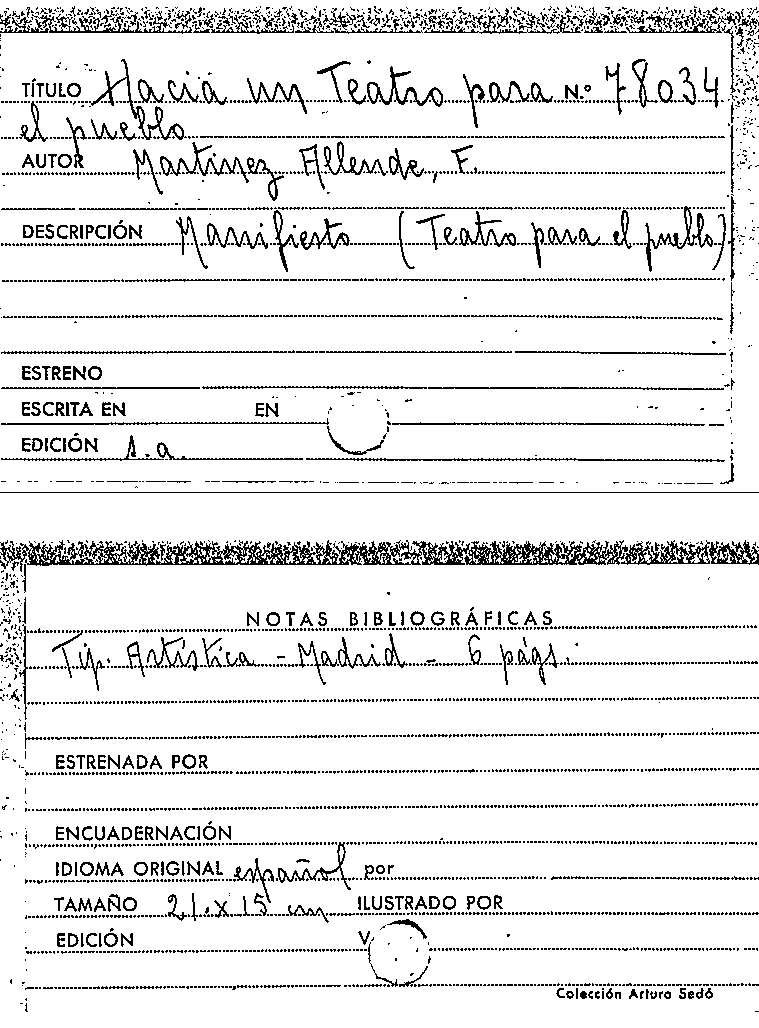 TÍTULO Hacia un Teatro para N.º 78034
el pueblo
AUTOR Martinez Allende, F.
DESCRIPCIÓN Manifiesto (Teatro para el pueblo)
ESTRENO
ESCRITA EN EN
EDICIÓN s.a.
NOTAS BIBLIOGRÁFICAS
Tip. Artística - Madrid - 6 págs.
ESTRENADA POR
ENCUADERNACIÓN
IDIOMA ORIGINAL español por
TAMAÑO 21 x 15 cm ILUSTRADO POR
EDICIÓN V
Colección Arturo Sedó